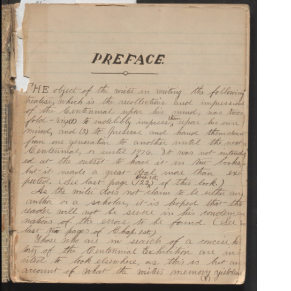 PREFACE.
THE object of the writer in writing the following
treatise, which is the recollections and impressions
of the Centennial upon his mind, was two
fold - to indelibly impress them upon his own
mind, and (2) to preserve and hand them down
from one generation to another until the next
Centennial, or until 1976. It was not intend-
ed at the outset to have it in two books,
but it made a great deal more than ex-
pected. (See last page (122) of this book.)
As the writer does not claim to be either an
author or a scholar, it is hoped that the
reader will not be severe in his condem-
nations of the errors to be found. (See
last two pages of Chap.
Those who are in search of a concise h
tory of the Centennial Exhibition are in-
vited to look elsewhere, as this is but an
account of what the writer's memory yielded